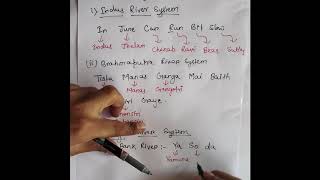 i) Indus River System
In June Can Run Bit Slow
Indus Jhelam Chenab Ravi Beas Sutlej
(ii) Brahmaputra River System
Tista Manas Ganga Mai Baith
Manas Gangotri
Gaye.
System
Bank River :- Ya So da
Yamuna